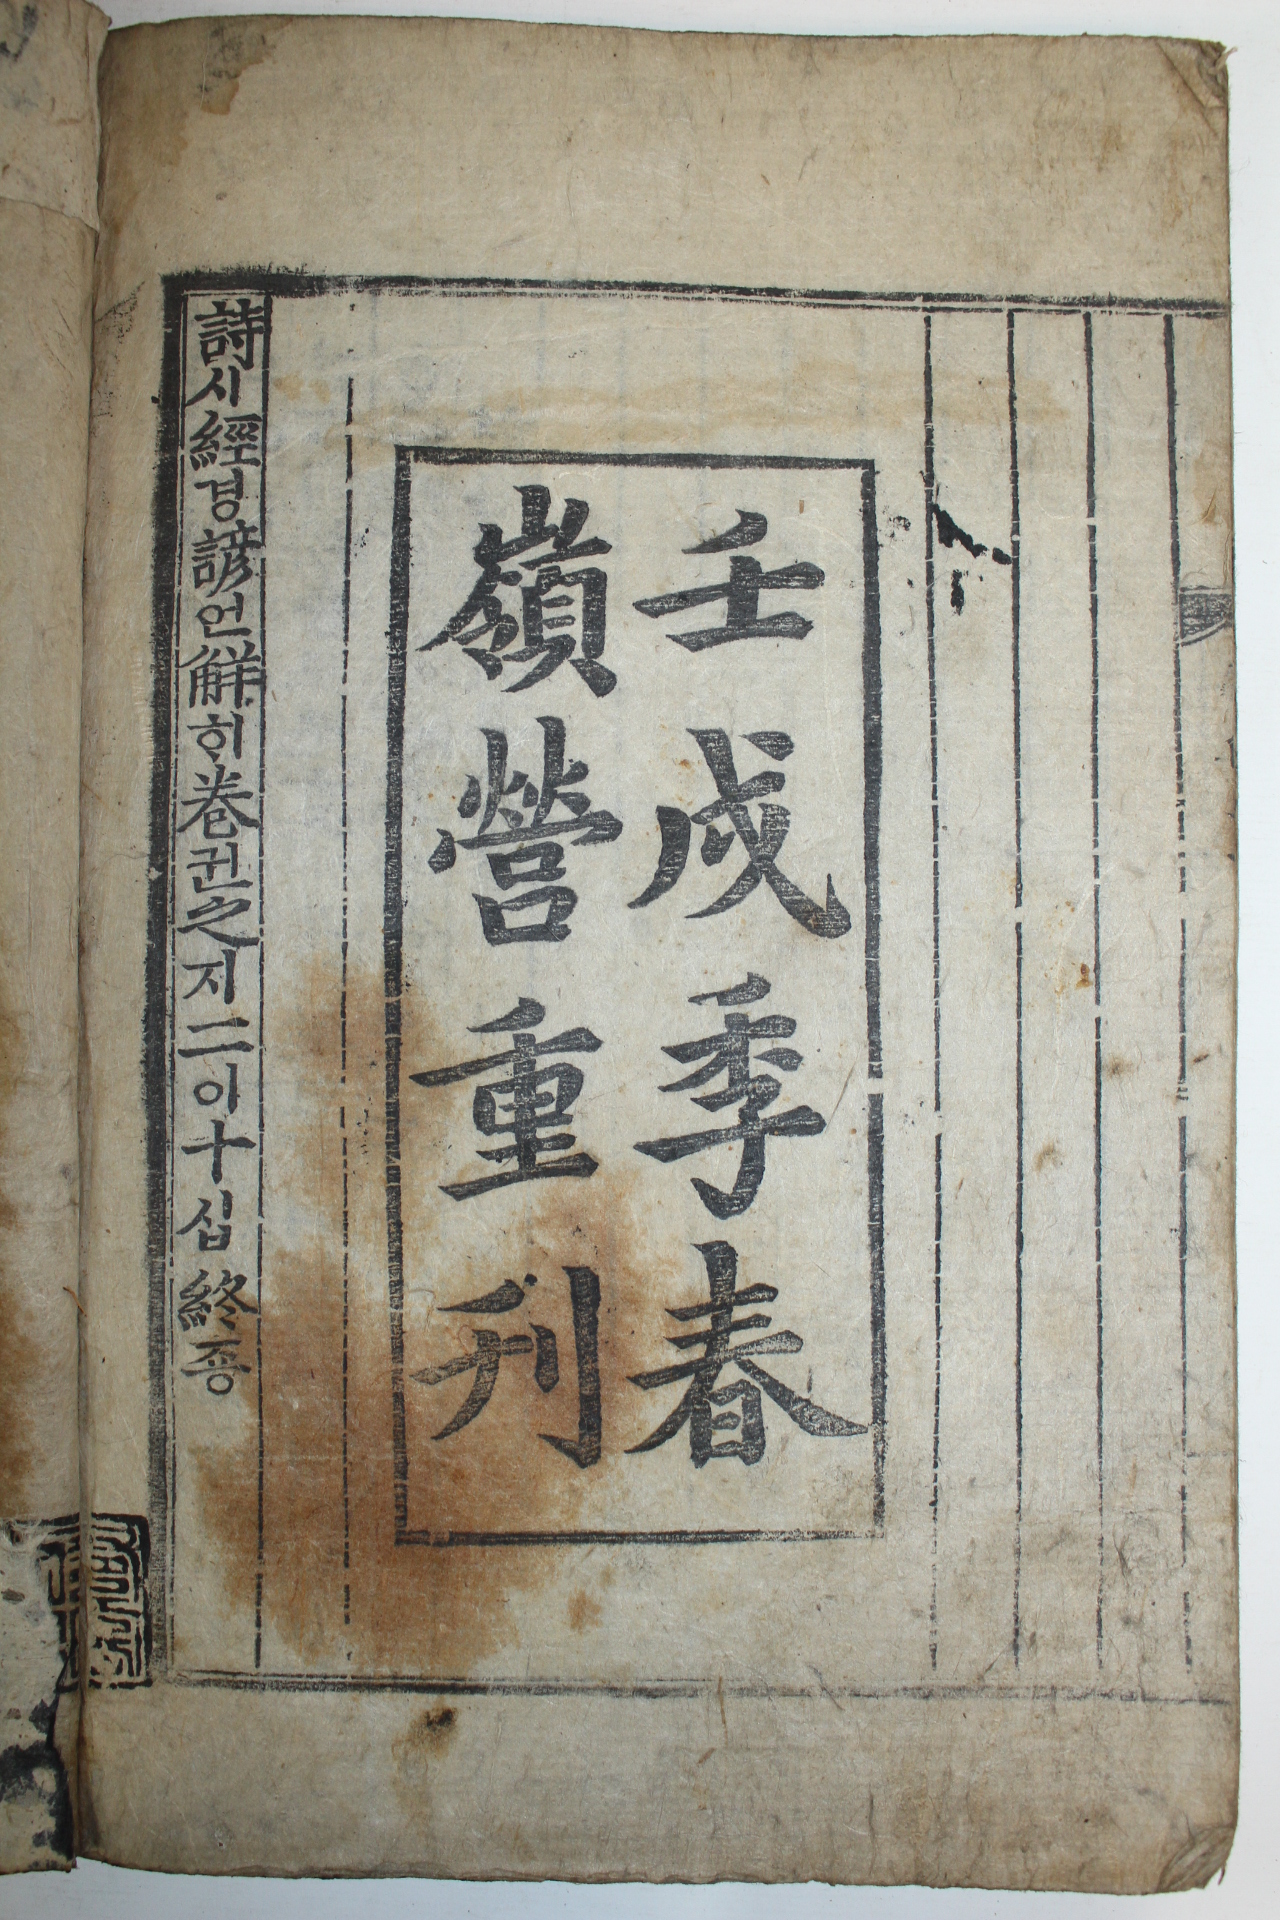 壬戌季春
嶺營重刊
詩시經경諺언觧ᄒᆡ卷권之지二이十십終죵